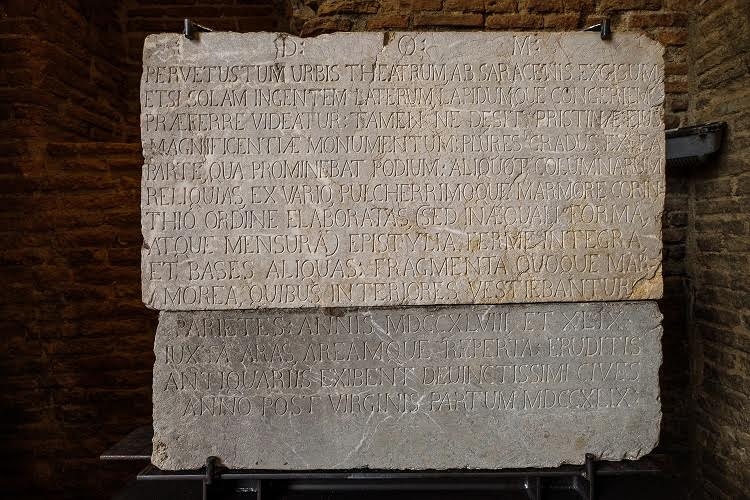 D: O: M:
PERVETUSTUM URBIS THEATRUM AB SARACENIS EXCISUM
ETSI SOLAM INGENTEM LATERUM, LAPIDUMQUE CONGERIEM
PRÆFERRE VIDEATUR: TAMEN NE DESIT PRISTINÆ EJUS
MAGNIFICENTIÆ MONUMENTUM: PLURES GRADUS EX EA
PARTE QUA PROMINEBAT PODIUM: ALIQUOT COLUMNARUM
RELIQUIAS, EX VARIO PULCHERRIMOQUE MARMORE CORIN
THIO ORDINE ELABORATAS (SED INÆQUALI FORMA,
ATQUE MENSURA) EPISTYLIA FERME INTEGRA
ET BASES ALIQUAS: FRAGMENTA QUOQUE MAR
MOREA, QUIBUS INTERIORES VESTIEBANTUR
PARIETES: ANNIS MDCCXLVIII ET XLIX
IUXTA ARAS, AREAMQUE REPERTA ERUDITIS
ANTIQUARIIS EXIBENT DEUINCTISSIMI CIVES
ANNO POST VIRGINIS PARTUM MDCCXLIX